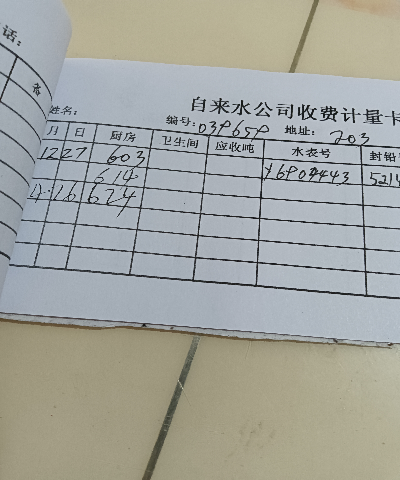 话:
自来水公司收费计量卡
姓名: 编号: 039659 地址: 203
月 日 厨房 卫生间 应收吨 水表号 封铅
12 27 603 16809443 5214
614
4.16 624